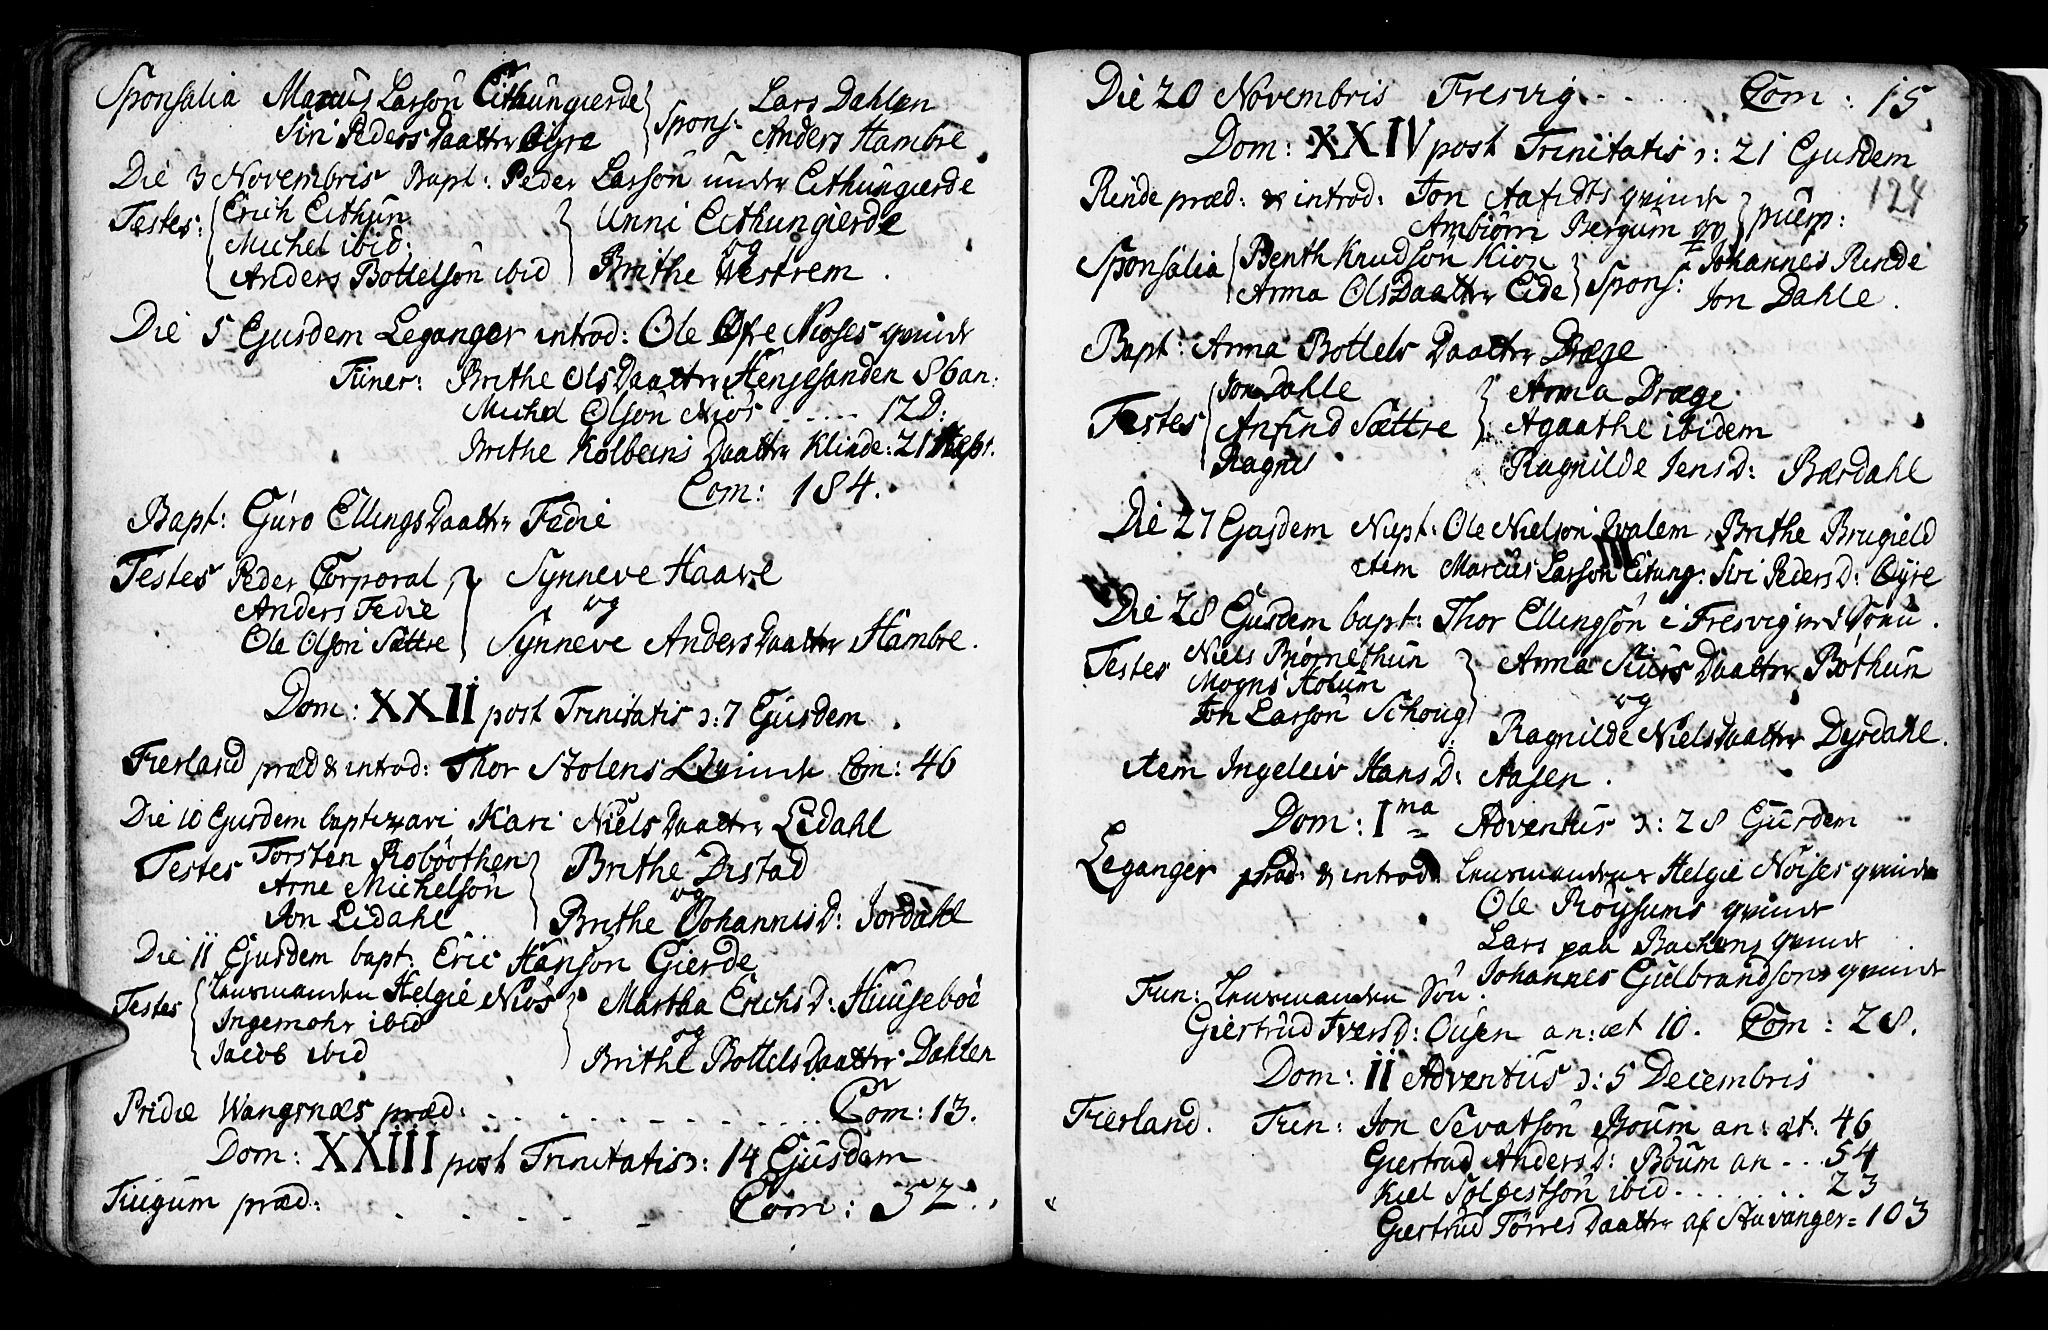 Sponsalia Marcus Larsön Eithungierde } Spons: Lars Dahlen
Siri Peders Daatter Øyre Anders Hambre
Die 3 Novembris Bapt: Peder Larsön under Eithungierde
Testes: Erich Eithun Unni Eithungierde
Michel ibid: og
Anders Bottelsön ibid Brithe Westrem.
Die 5 Ejusdem Leganger introd: Ole Øfre Nioses qvinde
Funer: Brithe Ols Daatter Henjesanden 86 an:
Michel Olsön Niös ..... 12 D:
Brithe Kolbeins Daatter Klinde: 21
Com: 184.
Bapt: Guro Ellings Daatter Fedie
Testes Peder Corporal Synneve Haave
Anders Fedie og
Ole Olsön Sættre Synneve Anders Daatter Hambre.
Dom: XXII post Trinitatis ɔ: 7 Ejusdem.
Fierland præd & introd: Thor Stolens Qvinde Com: 46
Die 10 Ejusdem baptizavi Kari Niels Daatter Eidahl
Testes Torsten Roböothen Brithe Distad
Arne Michelsön og
Jon Eidahl Brithe Johannis D: Jordahl
Die 11 Ejusdem bapt: Eric Hansön Gierde.
Testes Lensmanden Helgie Niös Martha Erichs D: Huuseböe
Ingemohr ibid og
Jacob ibid Brithe Bottels Daatter Dahlen
Pridie Wangsnæs præd: . . . . . . . Com: 13.
Dom: XXIII post Trinitatis ɔ: 14 Ejusdem
Fuigum præd: . . . . . Com: 52.
Die 20 Novembris Fresvig . . . Com: 15.
Dom: XXIV post Trinitatis ɔ: 21 Ejusdem
124
Rinde præd: & introd: Jon qvinde } puerp:
Ambiörn Bergum qv
Sponsalia Benth Knudsön Kion } Spons: Johannes Rinde
Anna Ols Daatter Eide Jon Dahle.
Bapt: Anna Bottels Daatter Dræge
Testes Jon Dahle Anna Dræge
Anfind Sættre Agaathe ibidem
Ragnilde Jens D: Bærdahl
Die 27 Ejusdem Nupt: Ole Nielsön Qvalem, Brithe Brugield
item Marcus Larsön Eitung: Siri Peders D: Øyre
Die 28 Ejusdem bapt: Thor Ellingsön i Fresvig
Testes Niels Biörnethun Anna Siurs Daatter Böthun
Mogns Holum og
Jon Larsön Schoug Ragnilde Niels Daatter Dyrdahl.
item Ingeleiv Hans D: Aasen.
Dom: I ma Adventus ɔ: 28 Ejusdem
Leganger præd: & introd: Lensmanden Helgie Nöises qvinde
Ole Röysums qvinde
Lars paa Backens qvinde
Johannes Gulbrandsons qvinde
Fun: Lensmanden Sön.
Giertrud Ivers D: Ousen an: æt 10. Com: 28.
Dom: II Adventus ɔ: 5 Decembris
Fierland. Fun: Jon Sevatsön Böum an: æt: 46
Giertrud Anders D: Böum an . . 54
Kiel Solgestsön ibid . . . . . . 23
Giertrud Törres Daatter af Stavanger = 103